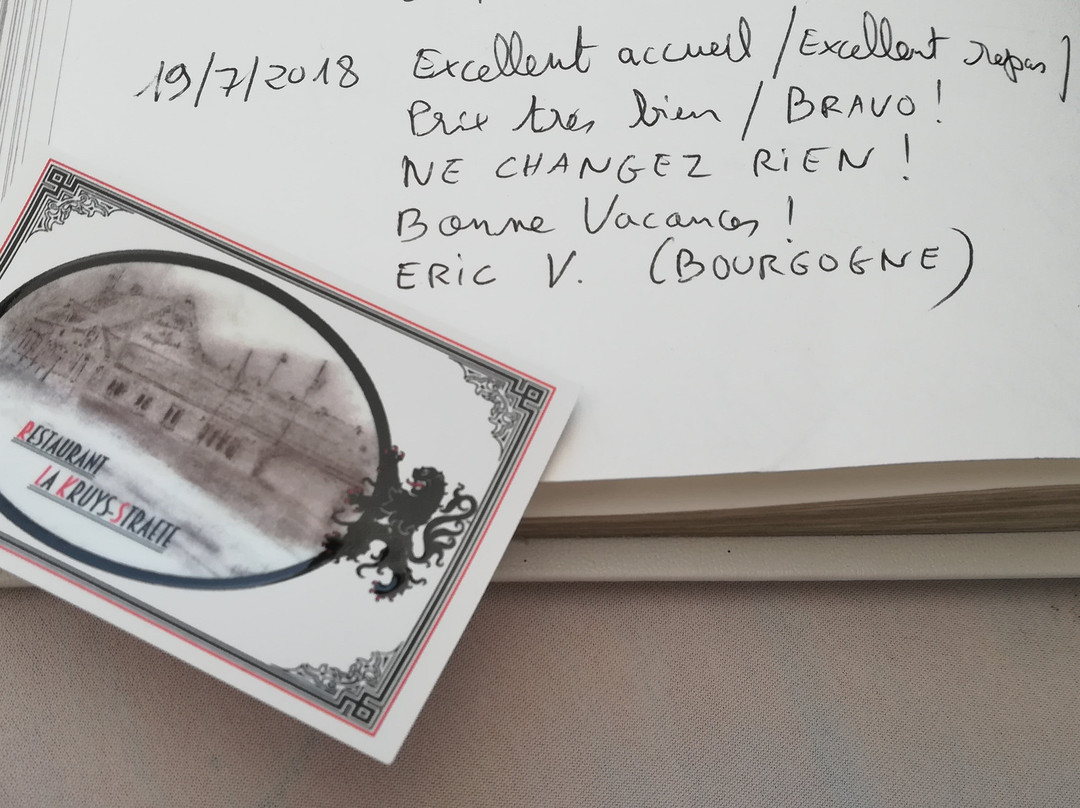 19/7/2018 Excellent accueil / Excellent repas /
Prix très bien / BRAVO !
NE CHANGEZ RIEN !
Bonne Vacances !
ERIC V. (BOURGOGNE)
RESTAURANT
LA KRUYS-STRAETE